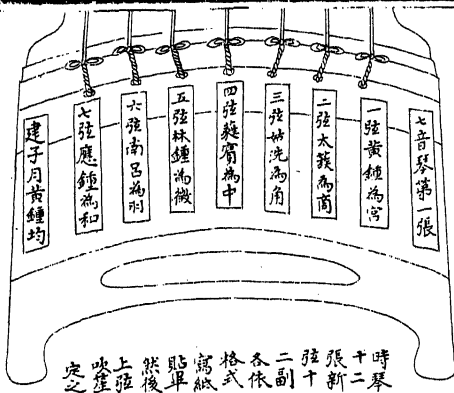 七音琴第一張
一弦黃鍾為宮
二弦太簇為商
三弦姑洗為角
四弦蕤賓為中
五弦林鍾為徵
六弦南呂為羽
七弦應鍾為和
建子月黃鍾均
時琴
十二
張新
弦十
二副
各依
格式
寫紙
貼畢
然後
上弦
吹笙
定之